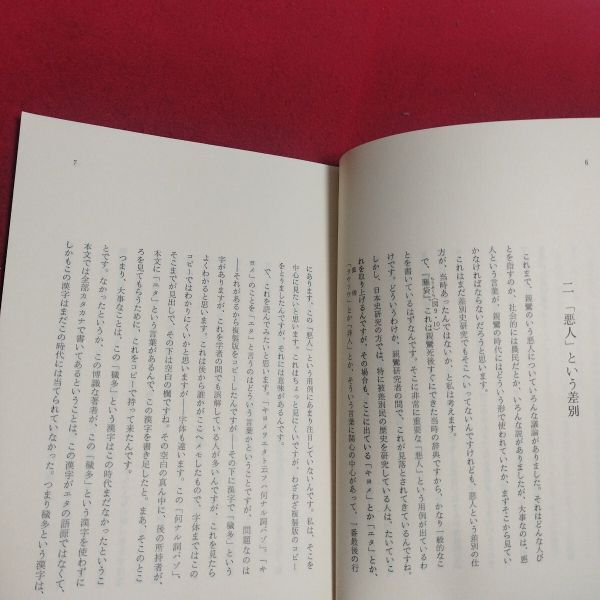 6
二「悪人」という差別
これまで、親鸞のいう悪人についていろんな議論がありました。それはどんな人び
とを指すのか、社会的には農民だとか、いろんな説がありましたが、大事なのは、悪
人という言葉が、親鸞の時代にはどういう形で使われていたか、まずそこから見てい
かなければならないだろうと思います。
これはまだ差別史研究でもそこへいってないんですけれども、悪人という差別の仕
方が、当時あったんではないか、と私は考えます。
で、『塵袋』これは親鸞死後すぐにできた当時の辞典ですから、かなり一般的なこ
とを書いているはずなんです。そこに非常に重要な「悪人」という用例が出ているわ
けです。どういうわけか、親鸞研究者の間で、これが見落とされてきているんですね。
しかし、日本史研究の方では、特に被差別民の歴史を研究している人は、たいていこ
れを取り上げるんですが、その場合も、ここに出ている「キヨメ」とか「エタ」とか、
とか「非人」とか、そういう言葉に関心の中心があって、一番最後の行
7
にあります、この「悪人」という用例にあまり注目していないんです。私は、そこを
中心に見たいと思います。これはちょっと見にくいんですが、わざわざ複製版のコピー
をとりましたんですが、それには意味があるんです。
で、これを読んでみたいと思います。「キヨメヲエタト云フハ何ナル詞バゾ」、「キ
ヨメ」のことを「エタ」と言うのはどういう言葉かということですが、問題なのは
――それがあるから複製版をコピーしたんですが――その下に漢字で「穢多」という
字がありますが、これを学者の間でも誤解している人が多いんですが、これを見たら
よくわかると思います。これは後から誰かがここへメモしたもので、字体まではこの
コピーではわかりにくいかと思いますが、字体も違います。この「何ナル詞バゾ」、
そこまでが見出しで、その下は空白の欄ですね。その空白の真ん中に、後の所持者が、
本文に「エタ」という言葉があるんで、この漢字を書き足したと。まあ、そこのとこ
ろを見てもらうために、これをコピーで持って来たんです。
つまり、大事なことは、この「穢多」という漢字はこの時代まだなかったというこ
とです。なかったというか、この博識な著者が、この「穢多」という漢字を使わずに
本文では全部カタカナで書いてあるということは、この漢字がエタの語源ではなくて、
しかもこの漢字はまだこの時代には当てられていなかった。つまり穢多という漢字は、